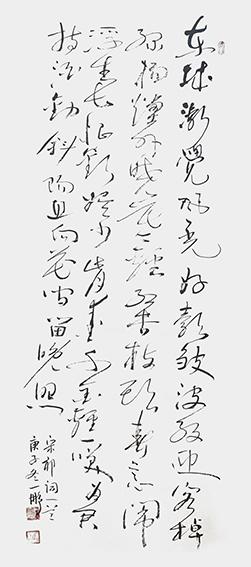 东城渐觉风光好縠皱波纹迎客棹
绿杨烟外晓寒轻红杏枝头春意闹
浮生长恨欢娱少肯爱千金轻一笑为君
持酒劝斜阳且向花间留晚照
宋祁词一首
庚子冬一